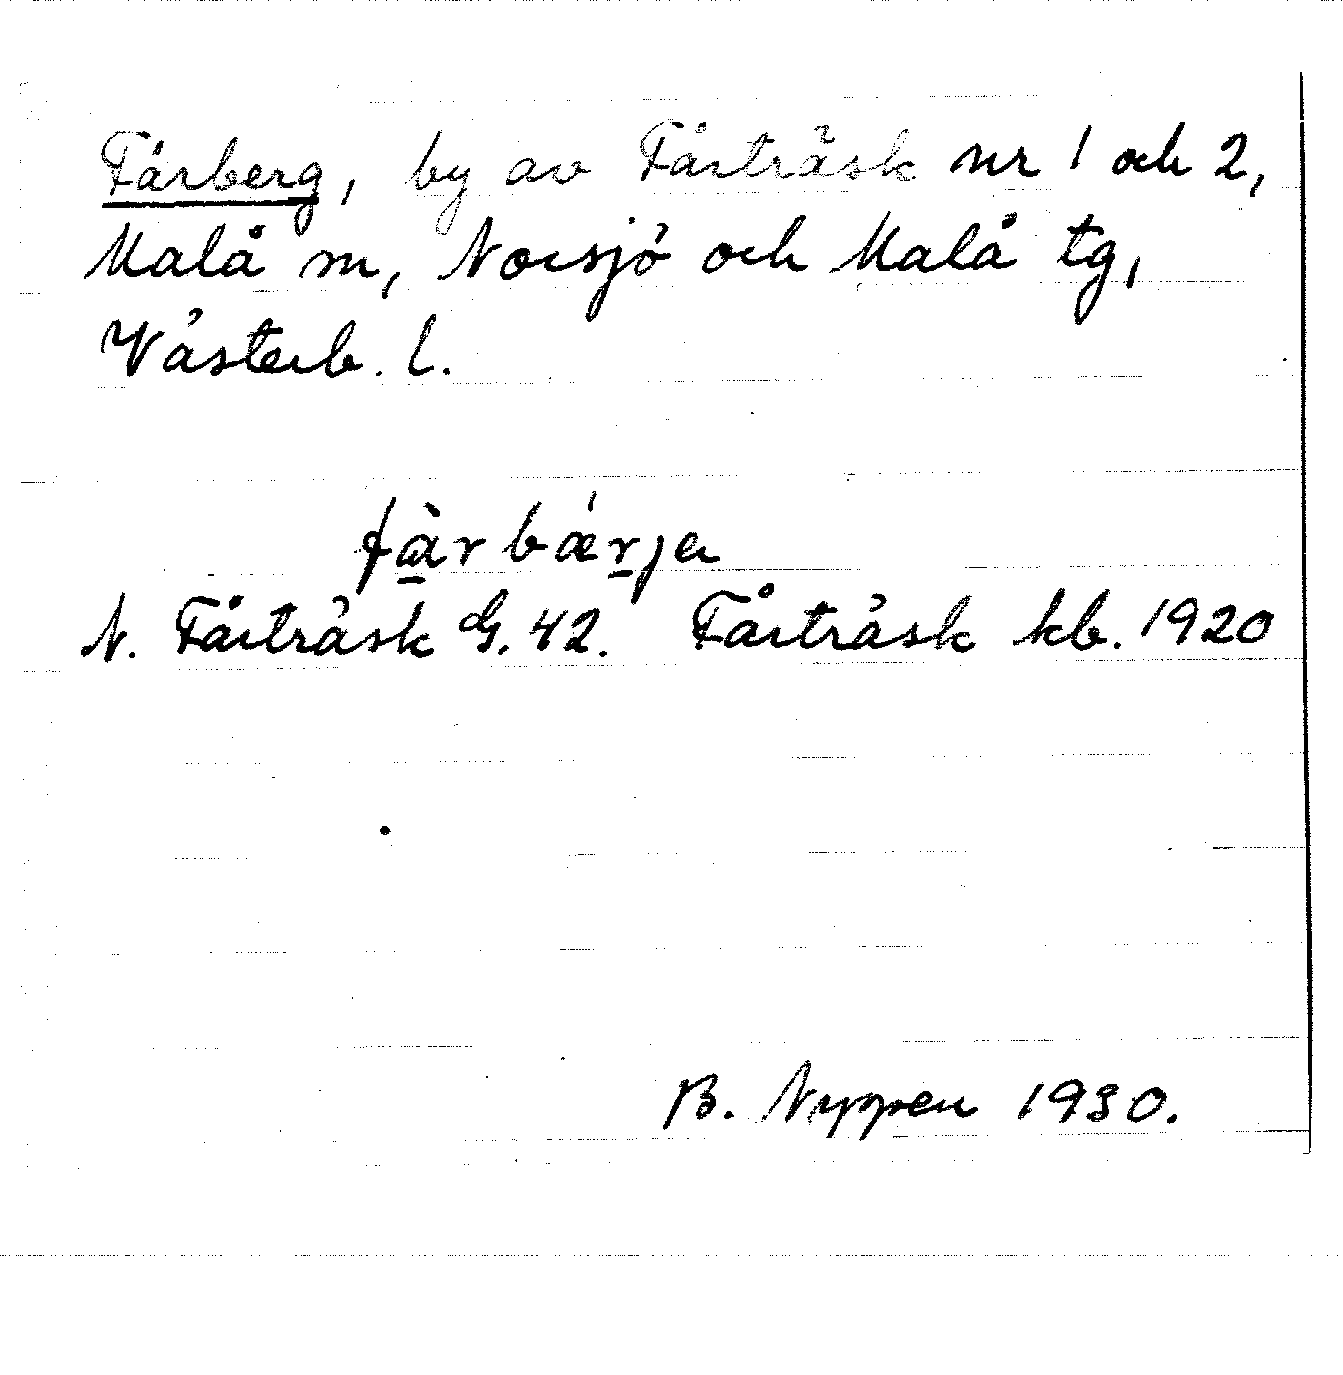 Fårberg, by av Fårträsk nr 1 och 2,
Malå m, Norsjö och Malå tg,
Västerb. l.
fàrbǽrja
N. Fårträsk G. 42. Fårträsk kb. 1920
B. Nyppen 1930.